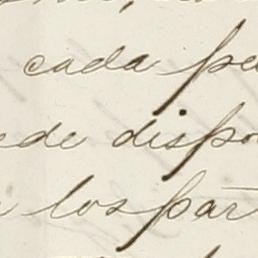 cada pe
ede dispo
los par